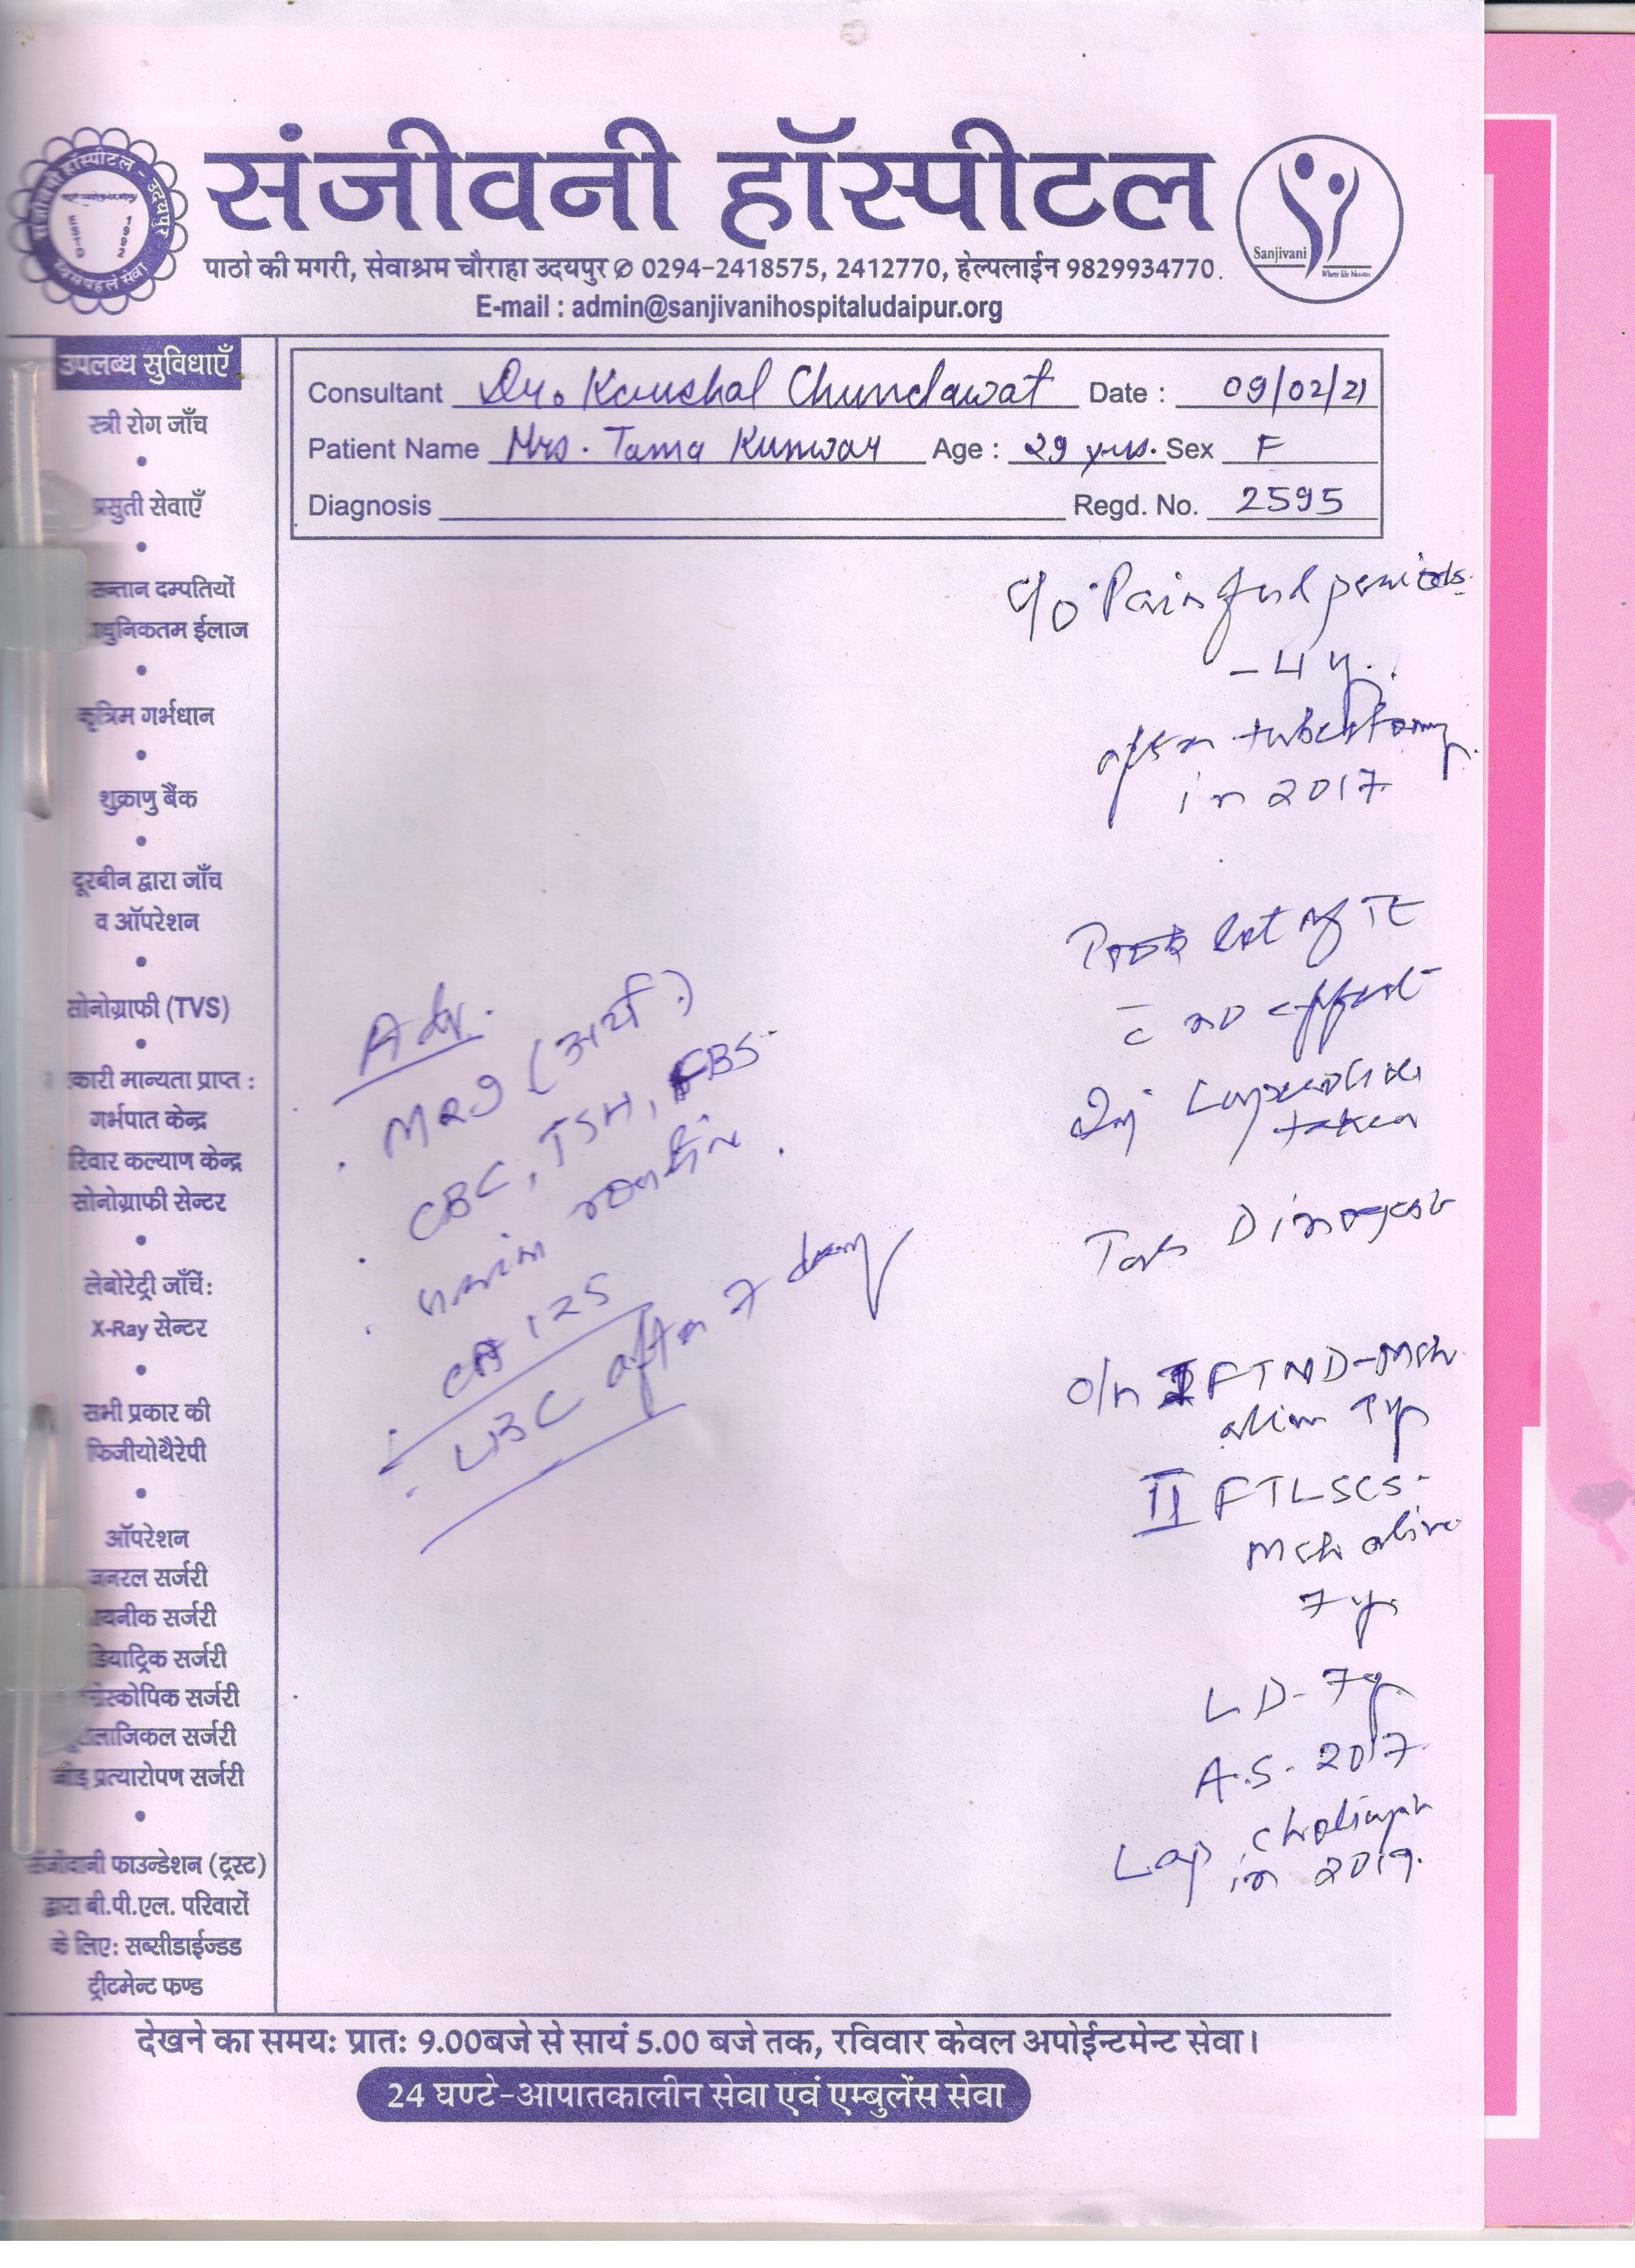 संजीवनी हॉस्पीटल
पाठो की मगरी, सेवाश्रम चौराहा उदयपुर ✆ 0294-2418575, 2412770, हेल्पलाईन 9829934770.
E-mail : admin@sanjivanihospitaludaipur.org
संजीवनी हॉस्पीटल - उदयपुर
ESTD 1992
Sanjivani
Where life blooms
उपलब्ध सुविधाएँ
स्त्री रोग जाँच
प्रसुती सेवाएँ
सन्तान दम्पतियों
धुनिकतम ईलाज
कृत्रिम गर्भधान
शुक्राणु बैंक
दूरबीन द्वारा जाँच
व ऑपरेशन
सोनोग्राफी (TVS)
कारी मान्यता प्राप्त :
गर्भपात केन्द्र
रिवार कल्याण केन्द्र
सोनोग्राफी सेन्टर
लेबोरेट्री जाँचें:
X-Ray सेन्टर
सभी प्रकार की
फिजीयोथैरेपी
ऑपरेशन
जनरल सर्जरी
यनीक सर्जरी
डियाट्रिक सर्जरी
स्कोपिक सर्जरी
लाजिकल सर्जरी
प्रत्यारोपण सर्जरी
संजीवानी फाउन्डेशन (ट्रस्ट)
द्वारा बी.पी.एल. परिवारों
के लिए: सब्सीडाईज्डड
ट्रीटमेन्ट फण्ड
Consultant Dr. Kaushal Chundawat Date : 09/02/21
Patient Name Mrs. Tama Kunwar Age : 29 yrs. Sex F
Diagnosis Regd. No. 2595
C/o Painful periods
- 4 y.
after tubectomy
in 2017
Took lot of Tt
c̄ no effect
Inj Leuprolide
taken
Tab Dinogest
O/H I FTND - Mch
alive 9 y
II FTLSCS -
Mch alive
7 y
LD - 7 y
A.S. 2017
Lap.
in 2019.
Adv.
MRI
CBC, TSH, FBS
CA 125
after 7 day
देखने का समय: प्रात: 9.00बजे से सायं 5.00 बजे तक, रविवार केवल अपोईन्टमेन्ट सेवा।
24 घण्टे-आपातकालीन सेवा एवं एम्बुलेंस सेवा